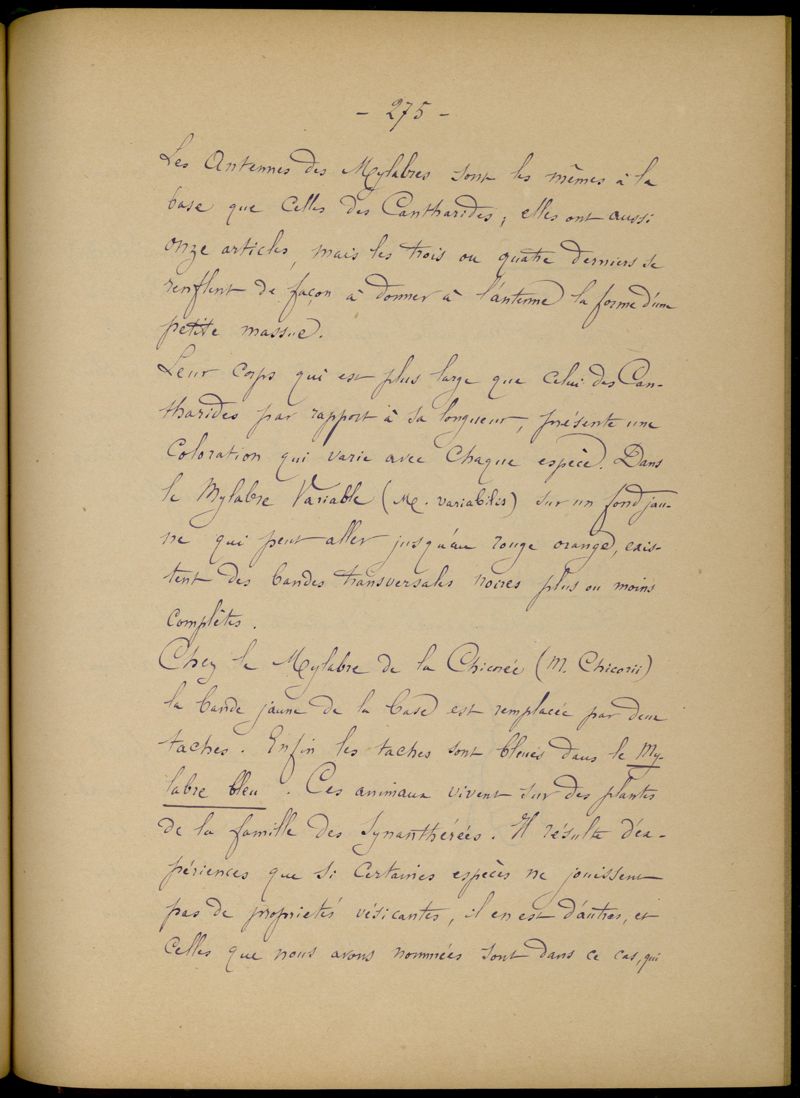 - 275 -
Les Antennes des Mylabres sont les mêmes à la
base que celles des Cantharides, elles ont aussi
onze articles, mais les trois ou quatre derniers se
renflent de façon à donner à l'antenne la forme d'une
petite massue.
Leur corps qui est plus large que celui des Can-
tharides par rapport à sa longueur, présente une
coloration qui varie avec chaque espèce. Dans
le Mylabre Variable (M. variabilis) sur un fond jau-
ne qui peut aller jusqu'au rouge orangé, exis-
tent des bandes transversales noires plus ou moins
complètes.
Chez le Mylabre de la Chicorée (M. Chicorii)
la bande jaune de la base est remplacée par deux
taches. Enfin les taches sont bleues dans le My-
labre bleu. Ces animaux vivent sur des plantes
de la famille des Synanthérées. Il résulte d'ex-
périences que si certaines espèces ne jouissent
pas de propriétés vésicantes, il en est d'autres, et
celles que nous avons nommées sont dans ce cas, qui